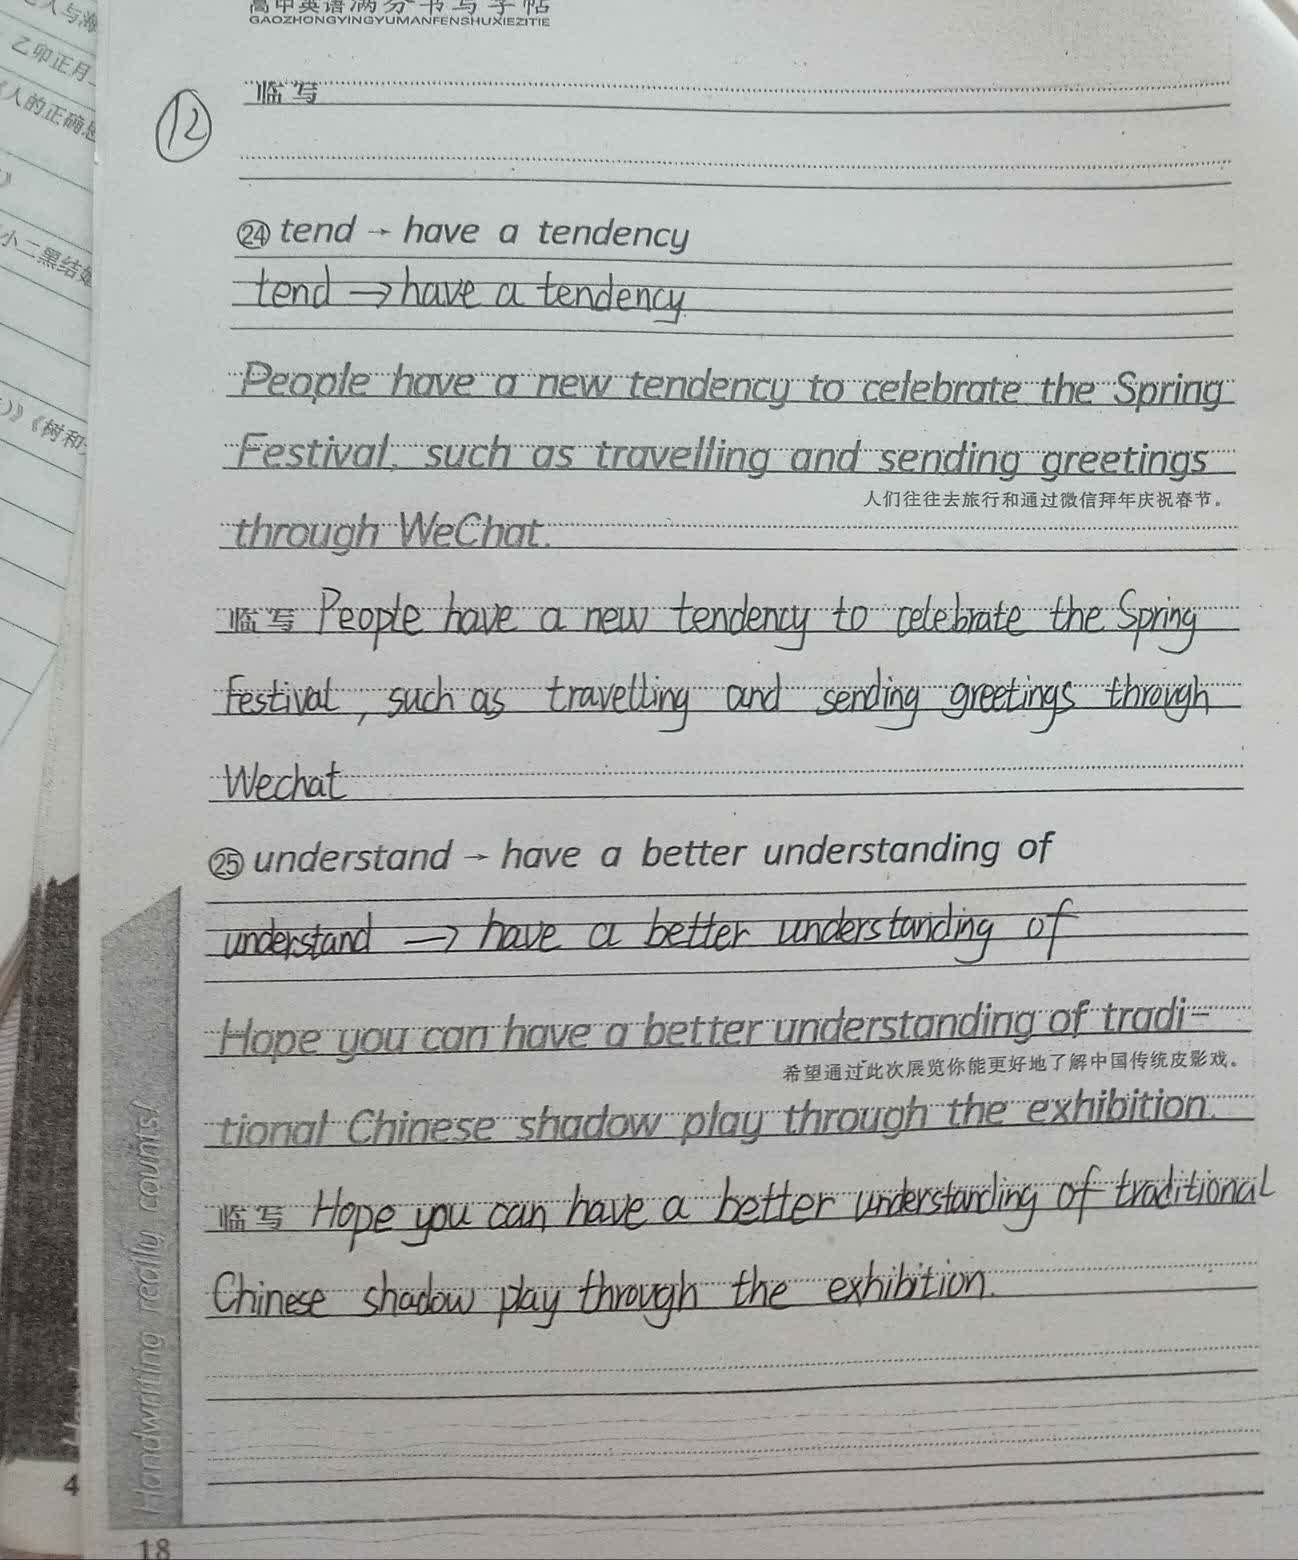 高中英语满分书写字帖
GAOZHONGYINGYUMANFENSHUXIEZITIE
人与海
乙卯正月
《人的正确思
》
小二黑结婚
》《树和
12
临写
㉔ tend → have a tendency
tend → have a tendency
People have a new tendency to celebrate the Spring
Festival, such as travelling and sending greetings
人们往往去旅行和通过微信拜年庆祝春节。
through WeChat.
临写 People have a new tendency to celebrate the Spring
Festival, such as travelling and sending greetings through
Wechat
㉕ understand → have a better understanding of
understand → have a better understanding of
Hope you can have a better understanding of tradi-
希望通过此次展览你能更好地了解中国传统皮影戏。
tional Chinese shadow play through the exhibition.
临写 Hope you can have a better understanding of traditional
Chinese shadow play through the exhibition.
Handwriting really counts!
4
18